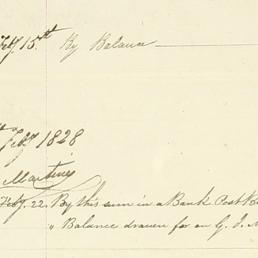 Feby. 15.th By Balance
Feby 1828
Martins
Feby. 22. By this sum in a Bank Post
" Balance drawn for on G. J.